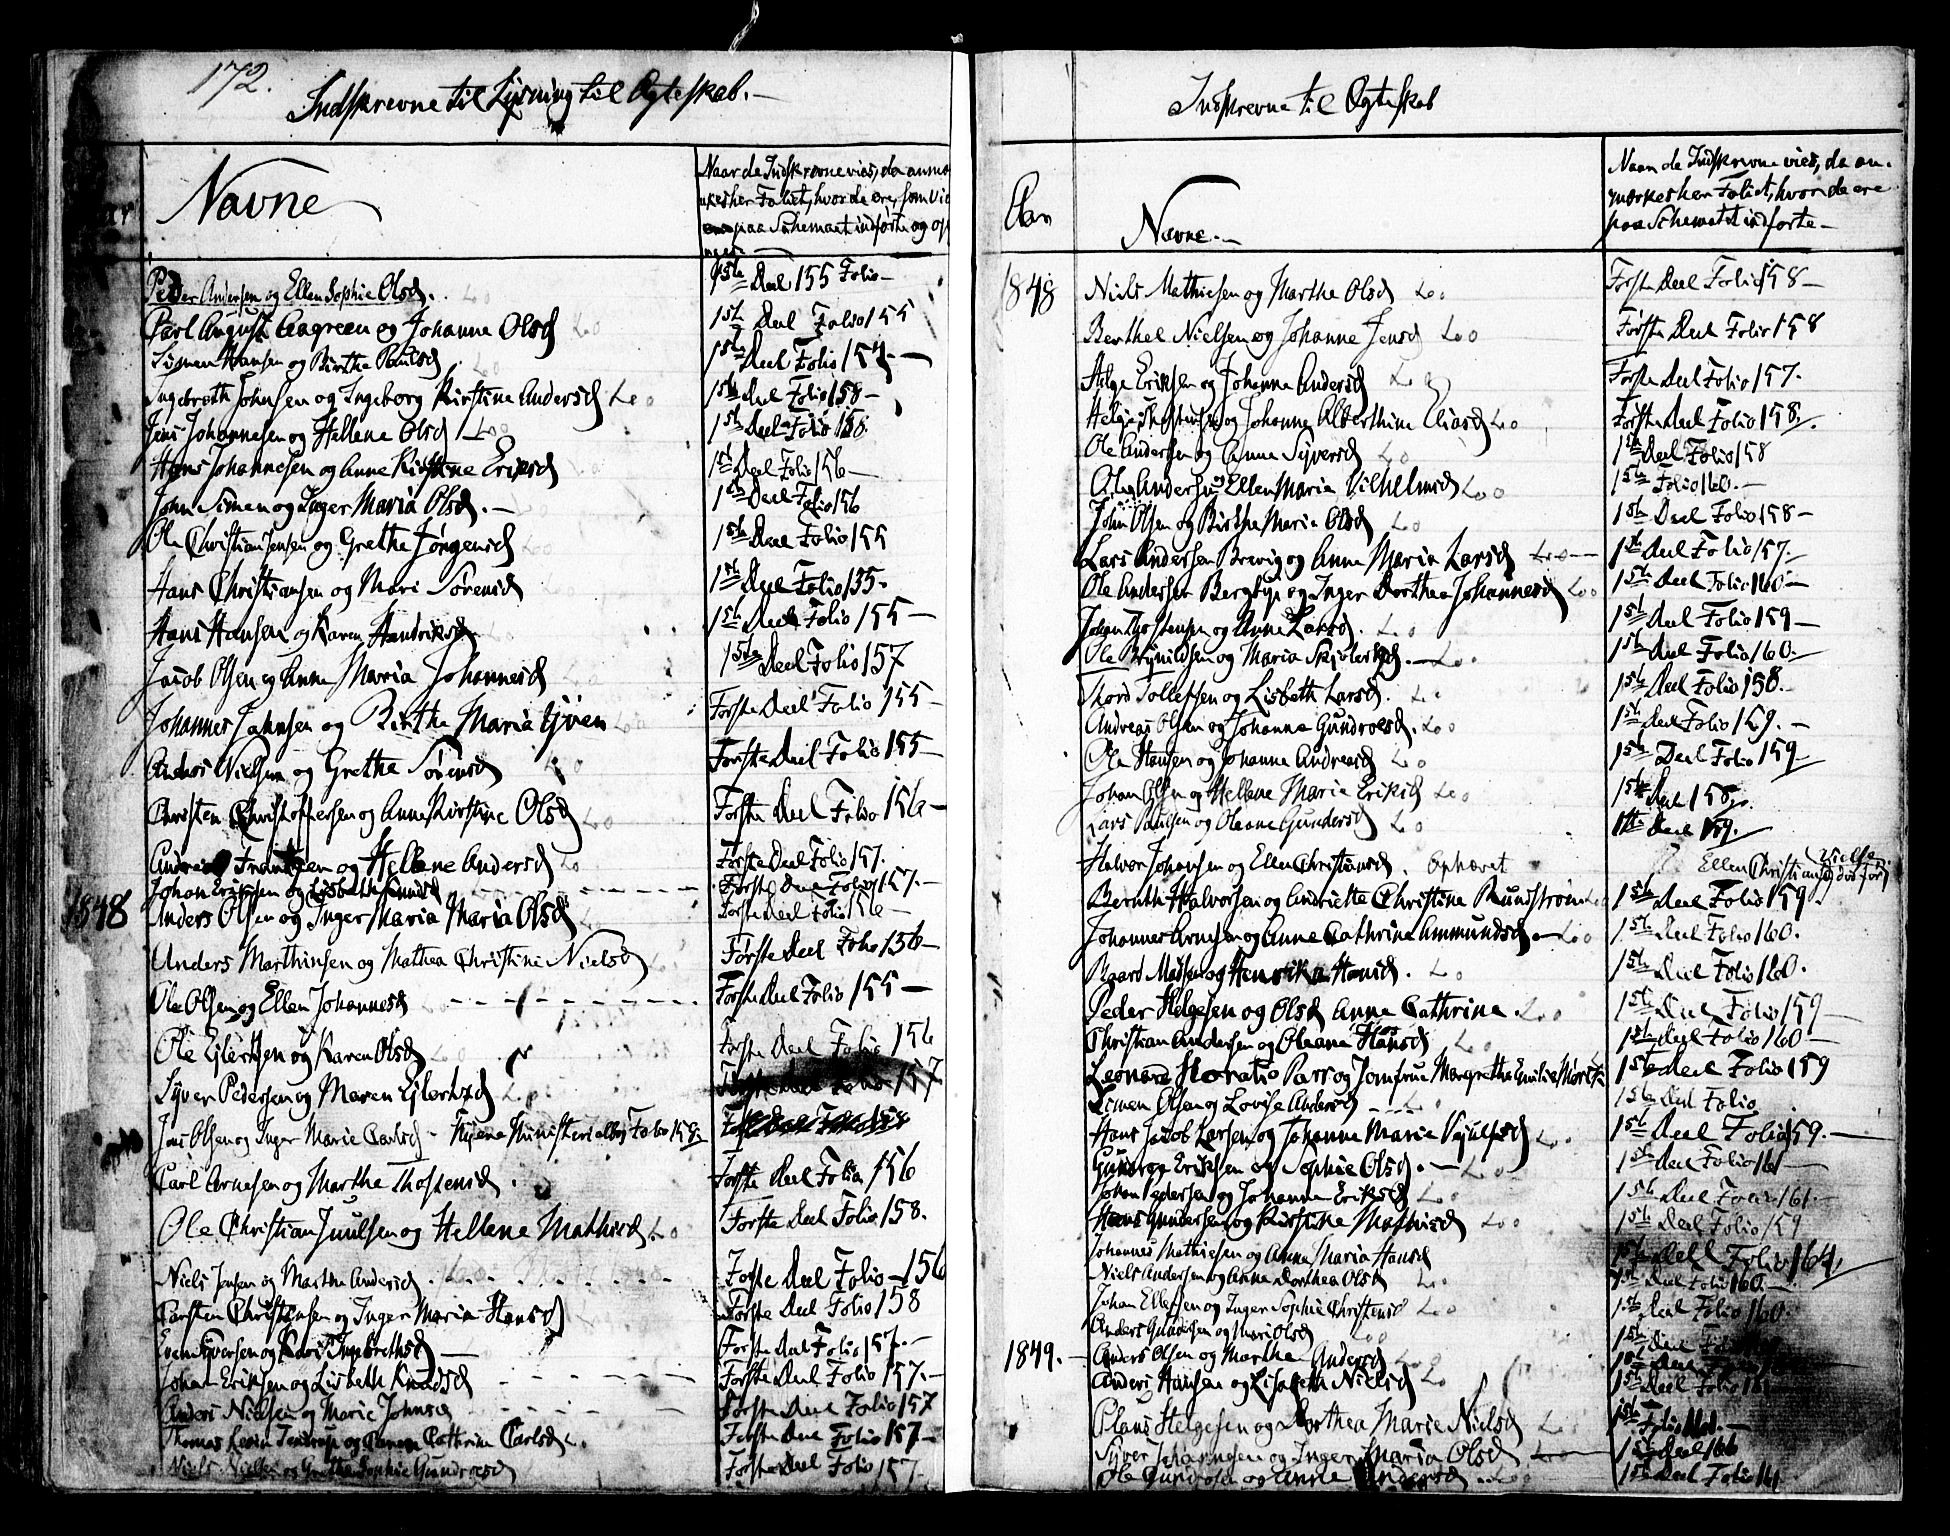 172.
Indskrevne til Lysning til Egteskab.—
Navne
Naar de Indskrevne vies, da anmæ
kes her Foliet, hvor de ere, som vie
paa Schemaet indførte og op
Peder Andersen og Ellen Sophie Olsd.
1ste Deel 155 Folio—
Carl August Aagreen og Johanne Olsd
1ste Deel Folio 155
Simen Hansen og Birthe Paulsd
1ste Deel Folio 157.—
Ingebreth Johnsen og Ingeborg Kirstine Andersd
1ste Deel Folio 158—
Jens Johannesen og Hellene Olsd
1ste Deel Folio 158
Hans Johannesen og Anne Kirstine Eriksd
1ste Deel Folio 156—
John Simen og Inger Maria Olsd.—
1ste Deel Folio 156
Ole Christian Jensen og Grethe Jørgensd
1ste Deel Folio 155
Hans Christiansen og Mari Sørensd
1ste Deel Folio 155.
Hans Hansen og Karen Hendriksd
1ste Deel Folio 155—
Jacob Olsen og Anne Maria Johannesd
1ste Deel Folio 157
Johannes Johnsen og Birthe Maria
Første Deel Folio 155—
Anders Nielsen og Grethe Sørensd
Første Deel Folio 155—
Christen Christoffersen og Anne Kirstine Olsd
Første Deel Folio 156—
Andreas og Hellene Andersd
Første Deel Folio 157.
Johan Eriksen og Lisbeth Knudsd
Første Deel Folio 157.—
1848
Anders Olsen og Inger Maria Maria Olsd
Første Deel Folio 156—
Anders Marthinsen og Mathea Christine Nielsd
Første Deel Folio 156—
Ole Olsen og Ellen Johannesd
Første Deel Folio 155—
Ole Ejlertsen og Karen Olsd
Første Deel Folio 156
Syver Pedersen og Maren Ejlertsd
Første Deel Folio 157
Jens Olsen og Inger Marie Carlsd - Ministerialbog Folio 158
Carl Arnesen og Marthe Thostensd.
Første Deel Folio 156
Ole Christian Juulsen og Hellene Mathisd.
Første Deel Folio 158.
Niels Jensen og Marthe Andersd.
Første Deel Folio—156
Carsten Christensen og Inger Maria Hansd
Første Deel Folio 158
Even Syversen og Kari Ingebrethsd—
Første Deel Folio 157.—
Johan Eriksen og Lisbeth Knudsd
Første Deel Folio 157.—
Anders Nielsen og Marie Johnsd
Første Deel Folio 157
Thomas og Karen Cathrine Carlsd
Første Deel Folio 157—
Niels Nielsen og Grethe Sophie Gundroesd
Første Deel Folio 157.
Indskrevne til Egteskab
Aar
Navne.—
Naar de Indskrevne vies, da an-
mærkes her Foliet, hvor de ere
paa Schematet indførte—
1848
Niels Mathiesen og Marthe Olsd
Første Deel Folio 158—
Berthel Nielsen og Johanne Jensd
Første Deel Folio 158
Helge Eriksen og Johanne Andersd
Første Deel Folio 157.
og Johanne Alberthine Eliasd
Første Deel Folio 158.
Ole Andersen og Anne Syversd
1ste Deel Folio 158
Ole Anders og Ellen Maria Vilhelmsd
1ste Folio 160.—
John Olsen og Birthe Marie Olsd
1ste Deel Folio 158—
Lars Andersen Brevig og Anne Maria Larsd
1ste Deel Folio 157.
Ole Andersen Bergbye og Inger Dorthea Johannesd
1ste Deel Folio 160—
Johan Thostensen og Anne Larsd.
1ste Deel Folio 159—
Ole Brynildsen og Maria .—
1ste Deel Folio 160.
Tollefsen og Lisbeth Larsd.
1ste Deel Folio 158.—
Andreas Olsen og Johanne Gundroesd.
1ste Deel Folio 159.—
Ole Hansen og Johanne Andreasd
1ste Deel Folio 159—
Johan Olsen og Hellene Marie Eriksd
1ste Deel 158.
Lars Paulsen og Oleane Gundersd
1ste Deel 159.
Halvor Johansen og Ellen Christiansd. Ophævet
Ellen Christiansd død før Vielsen.
Bernth Halvorsen og Andriette Christine Rundstrøm
1ste Deel Folio 159
Johannes Arnesen og Anne Cathrine Ammundsd.—
1ste Deel Folio 160.
Baard Madsen og Henrika Hansd.
1ste Deel Folio 160.
Peder Helgesen og Olsd Anne Cathrine.
1ste Deel Folio 159—
Christian Andersen og Oleane Hansd
1ste Deel Folio 160—
Leonard Horatio Parr og Jomfrue Margrethe Emilie
1ste Deel Folio 159
Simen Olsen og Lovise Andersd
1ste Deel Folio
Hans Jacob Larsen og Johanne Marie
1ste Deel Folio 159.—
Gundroe Eriksen og Sophie Olsd.—
1ste Deel Folio 161—
Johan Pedersen og Johanne Eriksd
1ste Deel Folio 161.
Hans Gundersen og Kirstine Mathisd
1ste Deel Folio 159
Johannes Mathiesen og Anne Maria Hansd
1ste Deel Folio 164
Niels Andersen og Anne Dorthea Olsd
1ste Deel Folio 160.—
Johan Ellefsen og Inger Sophie Christensd
1ste Deel Folio 160.
Anders Gundersen og Mari Olsd
1ste Deel
1849.—
Anders Olsen og Marthe Andersd
Anders Hansen og Lisabeth Nielsd
1ste Deel Folio
Claus Helgesen og Dorthea Marie Nielsd
1ste Folio
Syver Johannesen og Inger Maria Olsd
1ste Deel 166
Ole Gundrosen og Anne Andersd
1ste Deel Folio 161